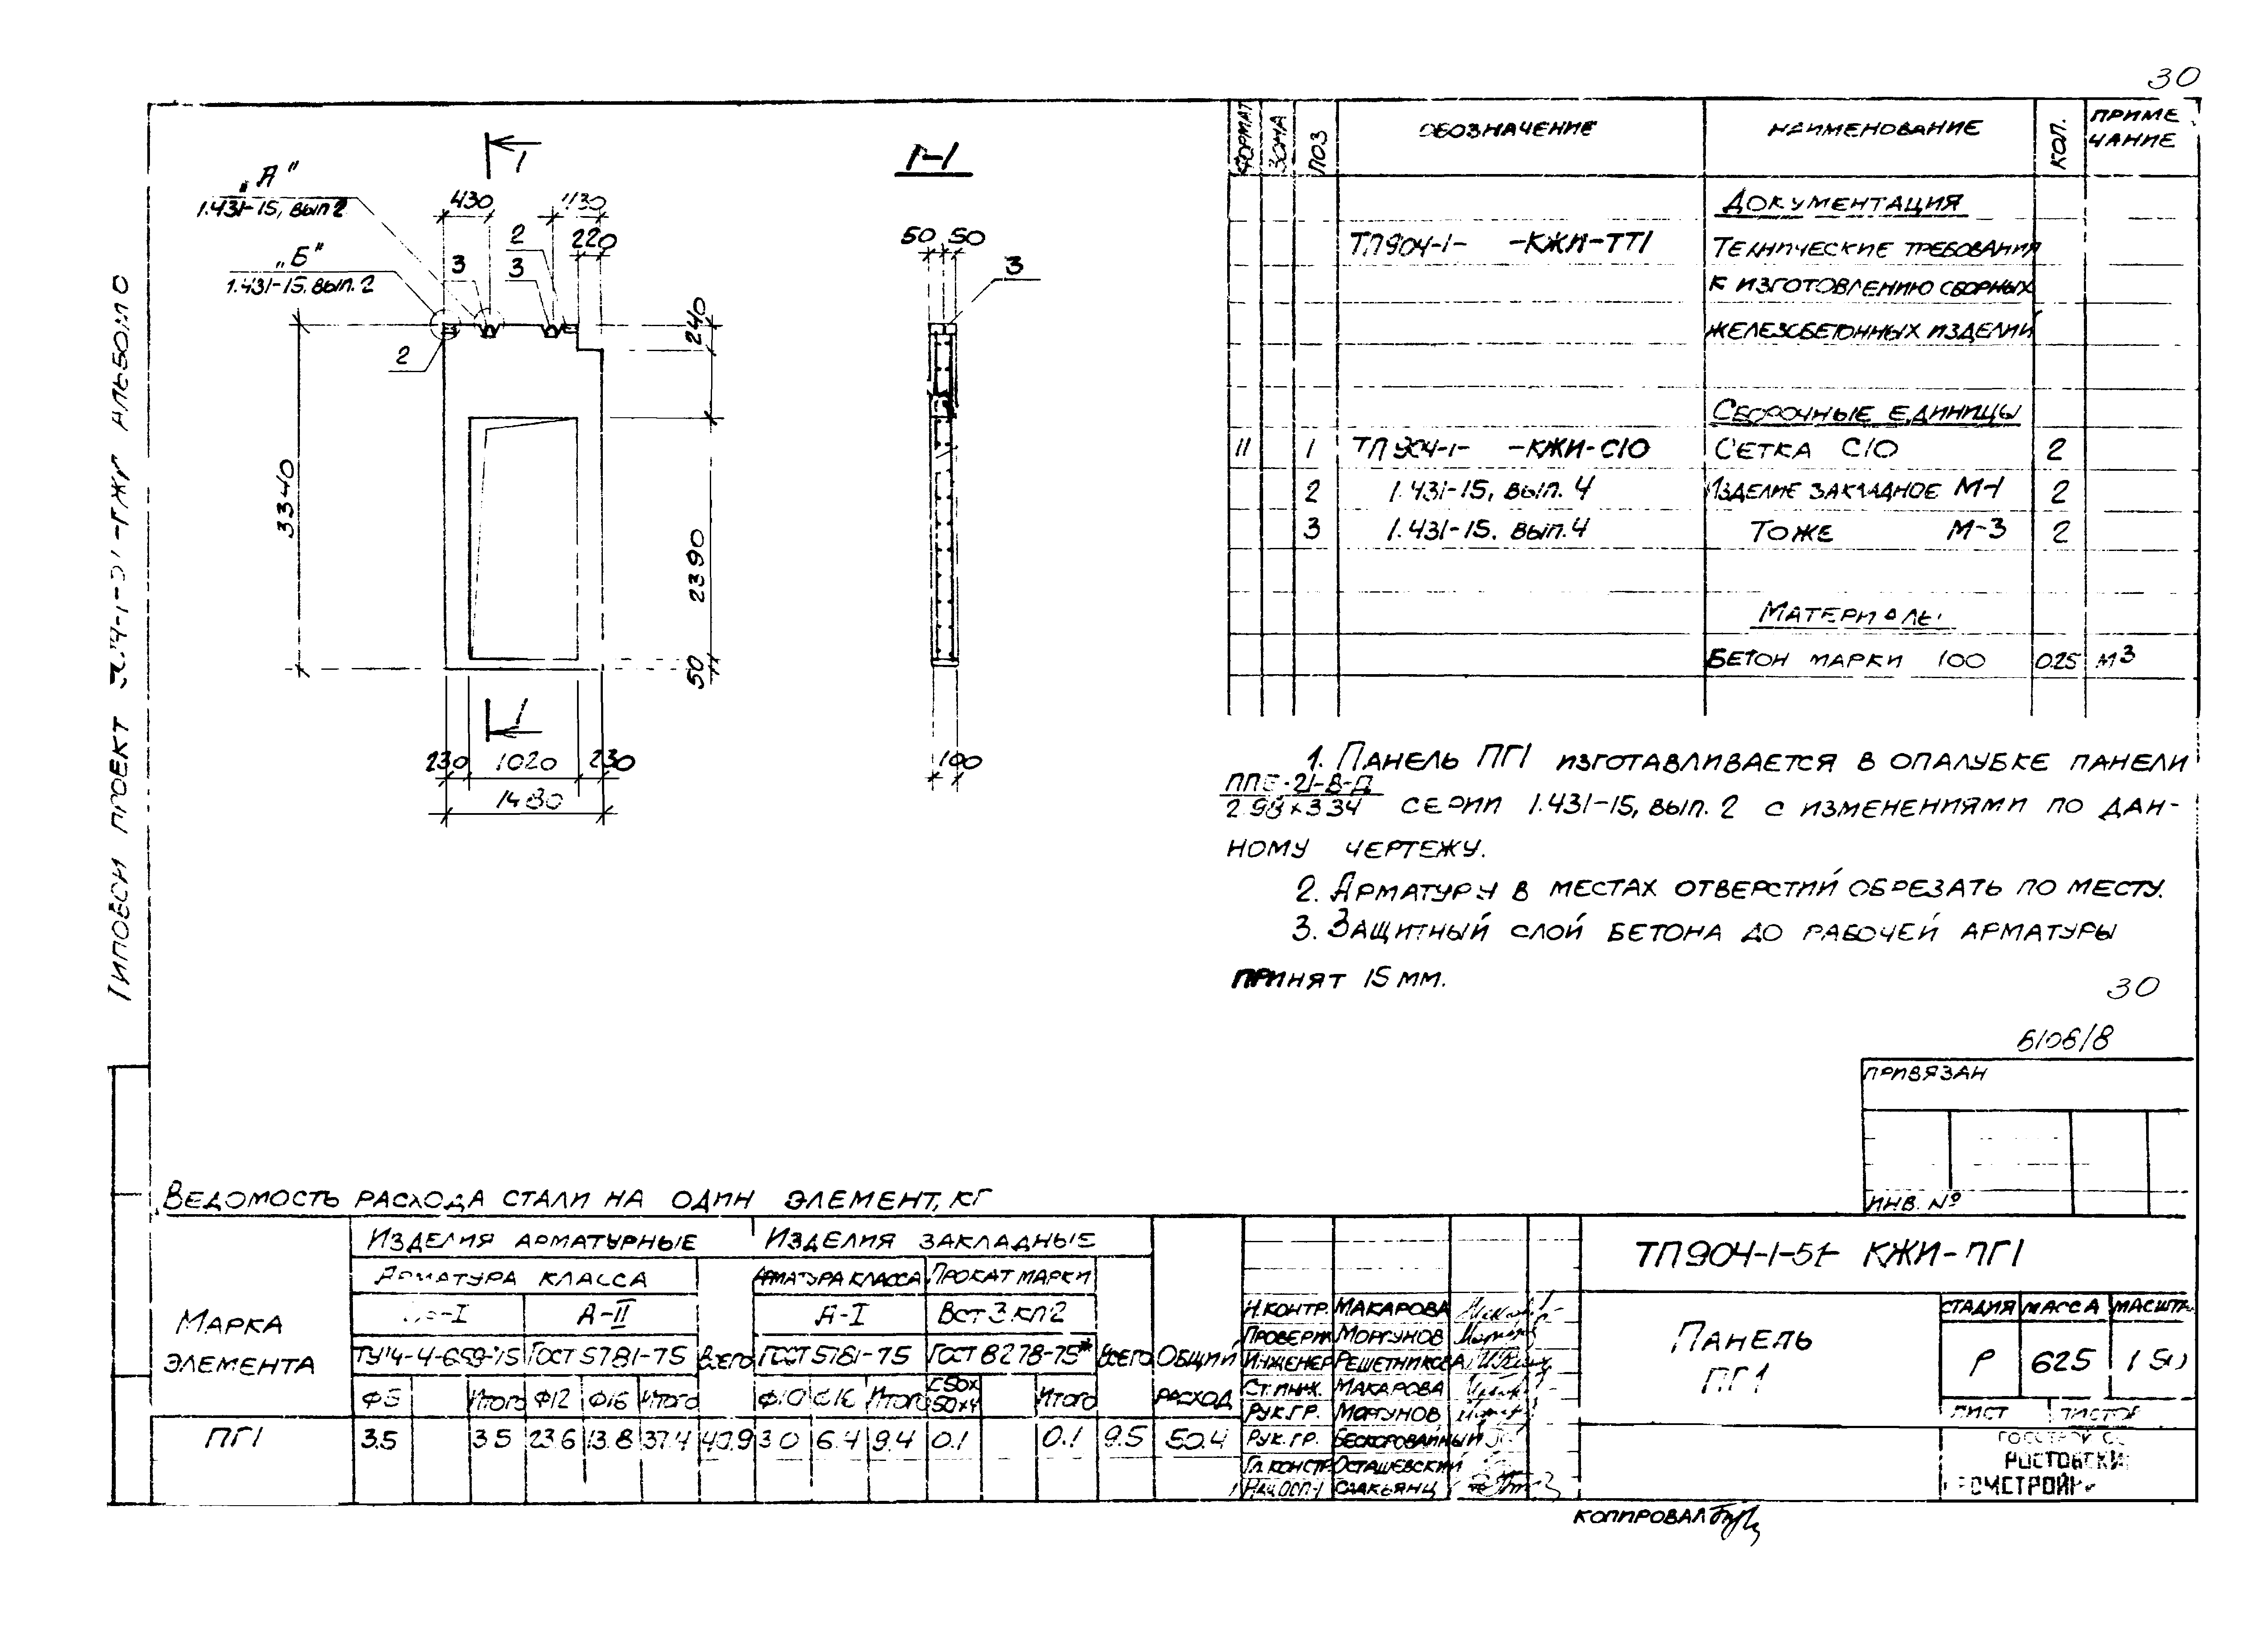 30
ТИПОВОЙ ПРОЕКТ АЛЬБОМ 0
1
„А"
1.431-15, вып 2
„Б"
1.431-15. вып. 2
430
430
220
2
3
3
2
240
3340
2390
50
1
230 1020 230
1480
1-1
50 50
3
100
ФОРМАТ ЗОНА ПОЗ ОБОЗНАЧЕНИЕ НАИМЕНОВАНИЕ КОЛ. ПРИМЕ
ЧАНИЕ
ДОКУМЕНТАЦИЯ
ТП904-1- -КЖИ-ТТ1 ТЕХНИЧЕСКИЕ ТРЕБОВАНИЯ
К ИЗГОТОВЛЕНИЮ СБОРНЫХ
ЖЕЛЕЗОБЕТОННЫХ ИЗДЕЛИЙ
СБОРОЧНЫЕ ЕДИНИЦЫ
11 1 ТП 904-1- -КЖИ-С10 СЕТКА С10 2
2 1.431-15, вып. 4 ИЗДЕЛИЕ ЗАКЛАДНОЕ М-1 2
3 1.431-15. вып. 4 ТОЖЕ М-3 2
МАТЕРИАЛЫ
БЕТОН МАРКИ 100 0.25 М3
1. ПАНЕЛЬ ПГ1 ИЗГОТАВЛИВАЕТСЯ В ОПАЛУБКЕ ПАНЕЛИ
21-В-Д
2.98×3.34 СЕРИИ 1.431-15, вып. 2 С ИЗМЕНЕНИЯМИ ПО ДАН-
НОМУ ЧЕРТЕЖУ.
2. АРМАТУРУ В МЕСТАХ ОТВЕРСТИЙ ОБРЕЗАТЬ ПО МЕСТУ.
3. ЗАЩИТНЫЙ СЛОЙ БЕТОНА ДО РАБОЧЕЙ АРМАТУРЫ
ПРИНЯТ 15 ММ.
30
ПРИВЯЗАН
ИНВ. №
ВЕДОМОСТЬ РАСХОДА СТАЛИ НА ОДИН ЭЛЕМЕНТ, КГ
МАРКА
ЭЛЕМЕНТА
ИЗДЕЛИЯ АРМАТУРНЫЕ ИЗДЕЛИЯ ЗАКЛАДНЫЕ
АРМАТУРА КЛАССА АРМАТУРА КЛАССА ПРОКАТ МАРКИ
А-II А-I Вст 3 кп 2
ГОСТ 5781-75 ВСЕГО ГОСТ 5781-75 ГОСТ 8278-75* ВСЕГО ОБЩИЙ
РАСХОД
Ф5 ИТОГО Ф12 Ф16 ИТОГО Ф10 ИТОГО С50×
50×4 ИТОГО
ПГ1 3.5 3.5 23.6 13.8 37.4 40.9 3.0 6.4 9.4 0.1 0.1 9.5 50.4
Н.КОНТР. МАКАРОВА
ПРОВЕРИЛ МОРГУНОВ
ИНЖЕНЕР РЕШЕТНИКОВА
СТ.ИНЖ. МАКАРОВА
РУК.ГР. МОРГУНОВ
РУК.ГР. БЕСКОРОВАЙНЫЙ
ГЛ.КОНСТР ОСТАШЕВСКИЙ
ТП904-1-51- КЖИ-ПГ1
ПАНЕЛЬ
ПГ1
СТАДИЯ МАССА МАСШТАБ
Р 625 1:50
ЛИСТ ЛИСТОВ
РОСТОВСКИЙ
КОПИРОВАЛ